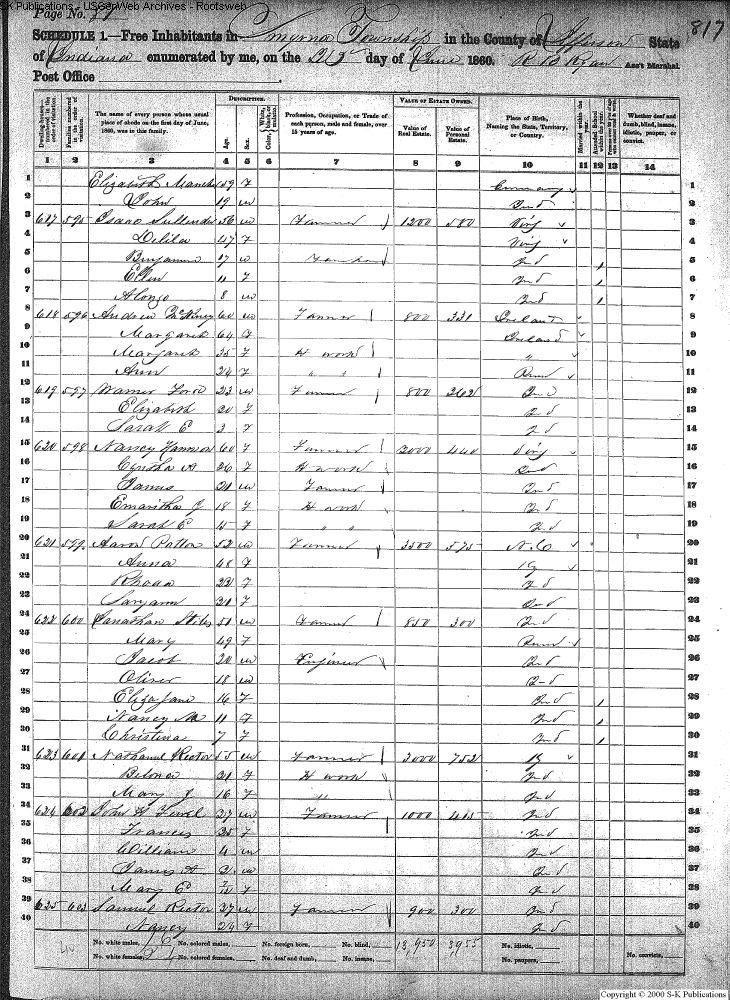 S-K Publications - USGenWeb Archives - Rootsweb
Page No.
817
SCHEDULE 1.—Free Inhabitants in Smyrna Township in the County of Jefferson State
of Indiana enumerated by me, on the day of June 1860. Ass't Marshal
Post Office
Dwelling-houses numbered in the order of visitation.
Families numbered in the order of visitation.
The name of every person whose usual place of abode on the first day of June, 1860, was in this family.
DESCRIPTION.
Age.
Sex.
Color, White, black, or mulatto.
Profession, Occupation, or Trade of each person, male and female, over 15 years of age.
VALUE OF ESTATE OWNED.
Value of Real Estate.
Value of Personal Estate.
Place of Birth, Naming the State, Territory, or Country.
Married within the year.
Attended School within the year.
Whether deaf and dumb, blind, insane, idiotic, pauper, or convict.
1 2 3 4 5 6 7 8 9 10 11 12 13 14
1 Elizabeth 59 f Germany 1
2 John 19 m Ind 2
3 617 595 Isaac Sullender 56 m Farmer 1200 580 Virg 3
4 Delila 47 f Virg 4
5 Benjamin 17 m Ind 5
6 Ellen 11 f Ind 6
7 Alonzo 8 m Ind 7
8 618 596 Andrew McKiney 60 m Farmer 800 331 Ireland 8
9 Margaret 64 f Ireland 9
10 Margaret 35 f H work " 10
11 Ann 24 f " " Penn 11
12 619 597 Warner 23 m Farmer 800 362 Ind 12
13 Elizabeth 20 f Ind 13
14 Sarah E 3 f Ind 14
15 620 598 Nancy Hammon 60 f Farmer 2000 440 Virg 15
16 26 f H work Ind 16
17 James 21 m Farmer Ind 17
18 J 18 f H work Ind 18
19 Sarah E 15 f " " Ind 19
20 621 599 Aaron Patton 52 m Farmer 3500 575 N.C 20
21 Anna 48 f Ky 21
22 Rhoda 23 f Ind 22
23 Saryann 21 f Ind 23
24 622 600 Janathan Stiles 51 m Farmer 850 300 Ind 24
25 Mary 49 f Penn 25
26 Jacob 20 m Engineer Ind 26
27 Oliver 18 m Ind 27
28 Eliza Jane 16 f Ind 28
29 Nancy M 11 f Ind 29
30 Christina 7 f Ind 30
31 623 601 Nathaniel Rector 55 m Farmer 3000 752 Ky 31
32 21 f H work Ind 32
33 Mary J 16 f " Ind 33
34 624 602 John W 27 m Farmer 1000 415 Ind 34
35 Frances 25 f Ind 35
36 William 4 m Ind 36
37 James A 2 m Ind 37
38 Mary E f Ind 38
39 625 603 Samuel Rector 27 m Farmer 900 300 Ind 39
40 Nancy 24 f Ind 40
40 No. white males, No. colored males, No. foreign born, No. blind, 13,950 3955 No. idiotic,
No. white females, No. colored females, No. deaf and dumb, No. insane, No. paupers, No. convicts,
Copyright © 2000 S-K Publications